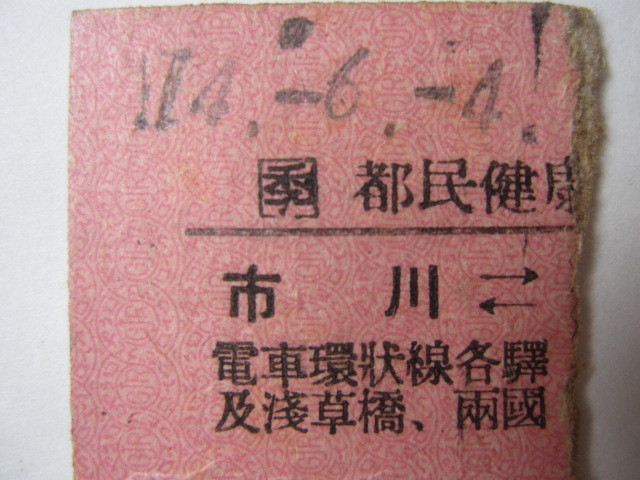 14.-6.-4.
秀 都民健康
市川⇄
電車環狀線各驛
及淺草橋、兩國